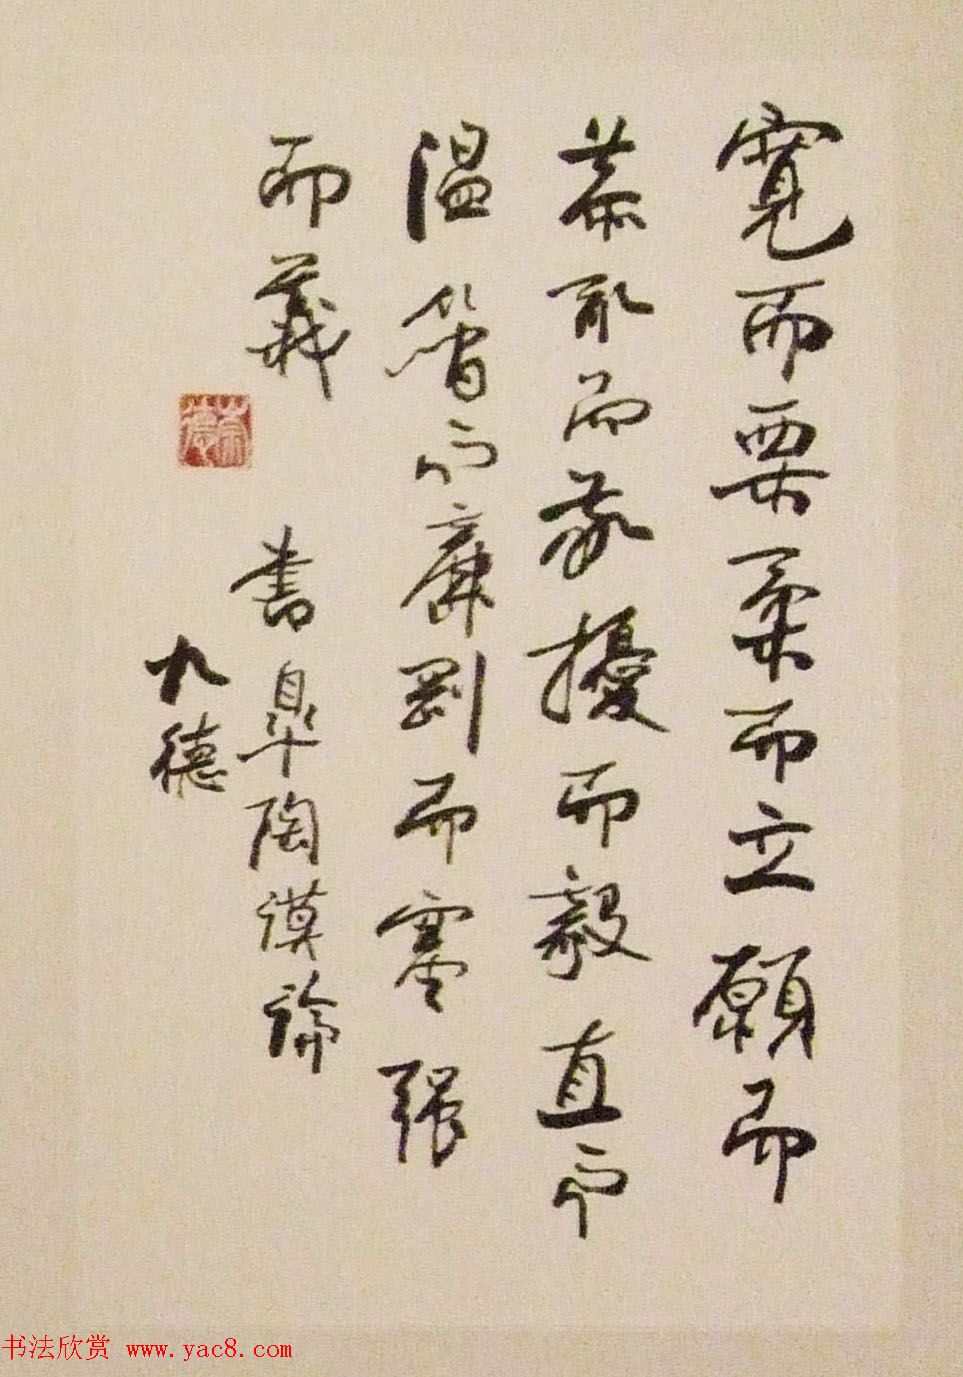 寬而栗柔而立願而
恭而敬擾而毅直而
温簡而廉剛而塞强
而義
書皋陶謨論
九德
书法欣赏 www.yac8.com